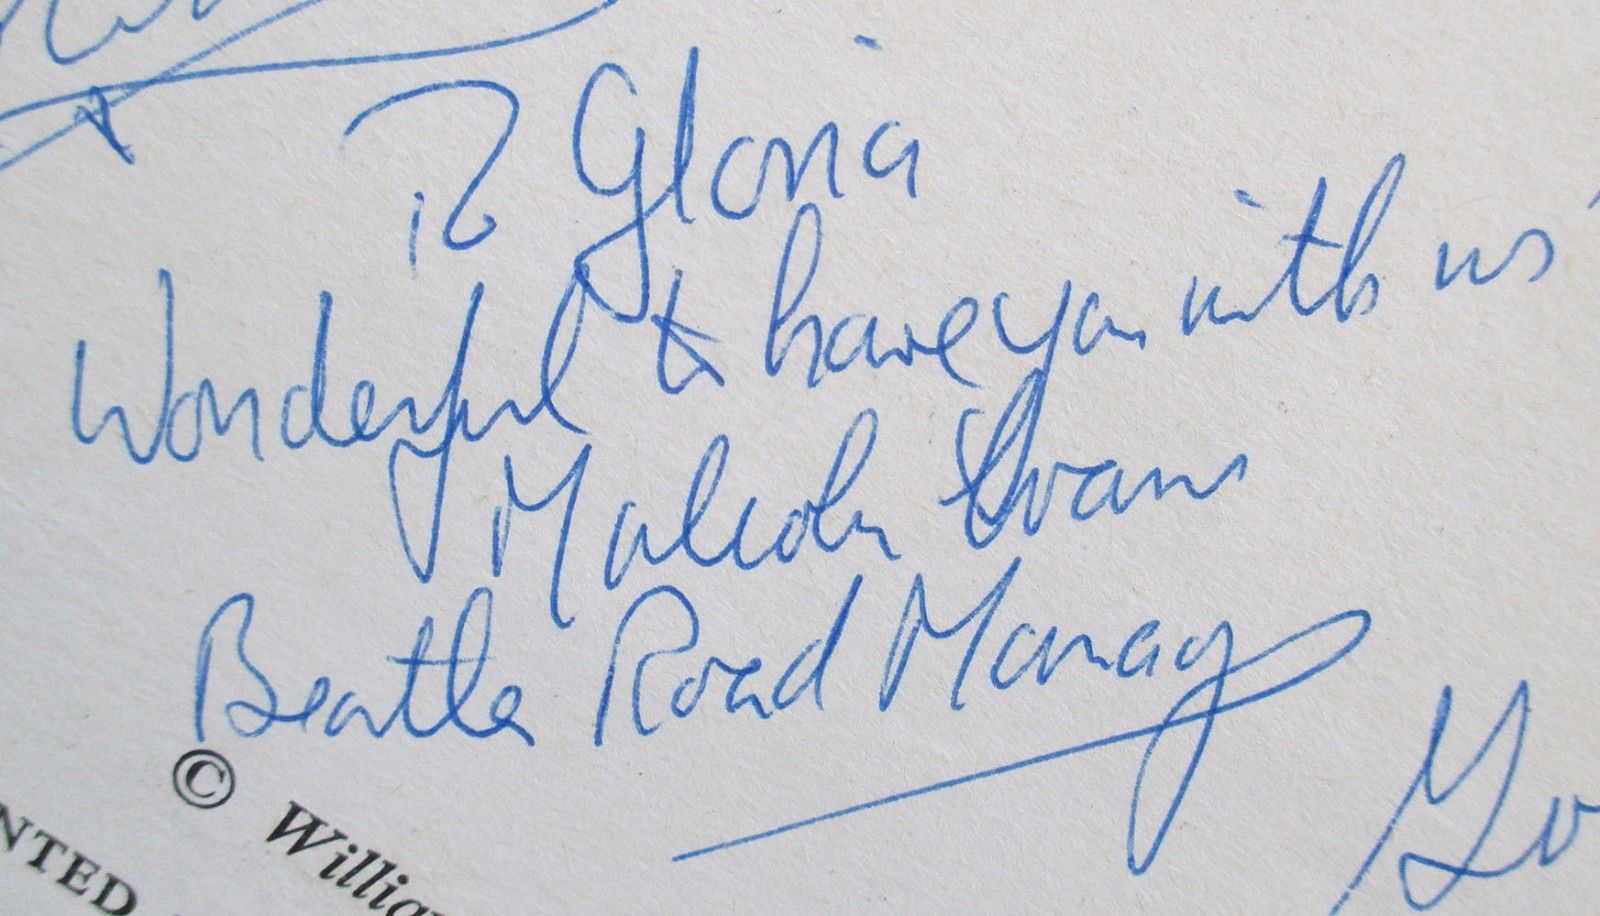 To Gloria
Wonderful to have you with us
Malcolm Evans
Beatle Road Manager
©
NTED